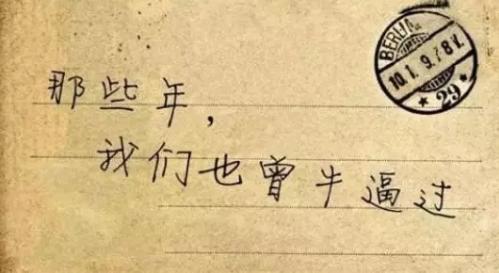 BERLIN
10.1.9.78V.
* 29 *
那些年，
我们也曾牛逼过